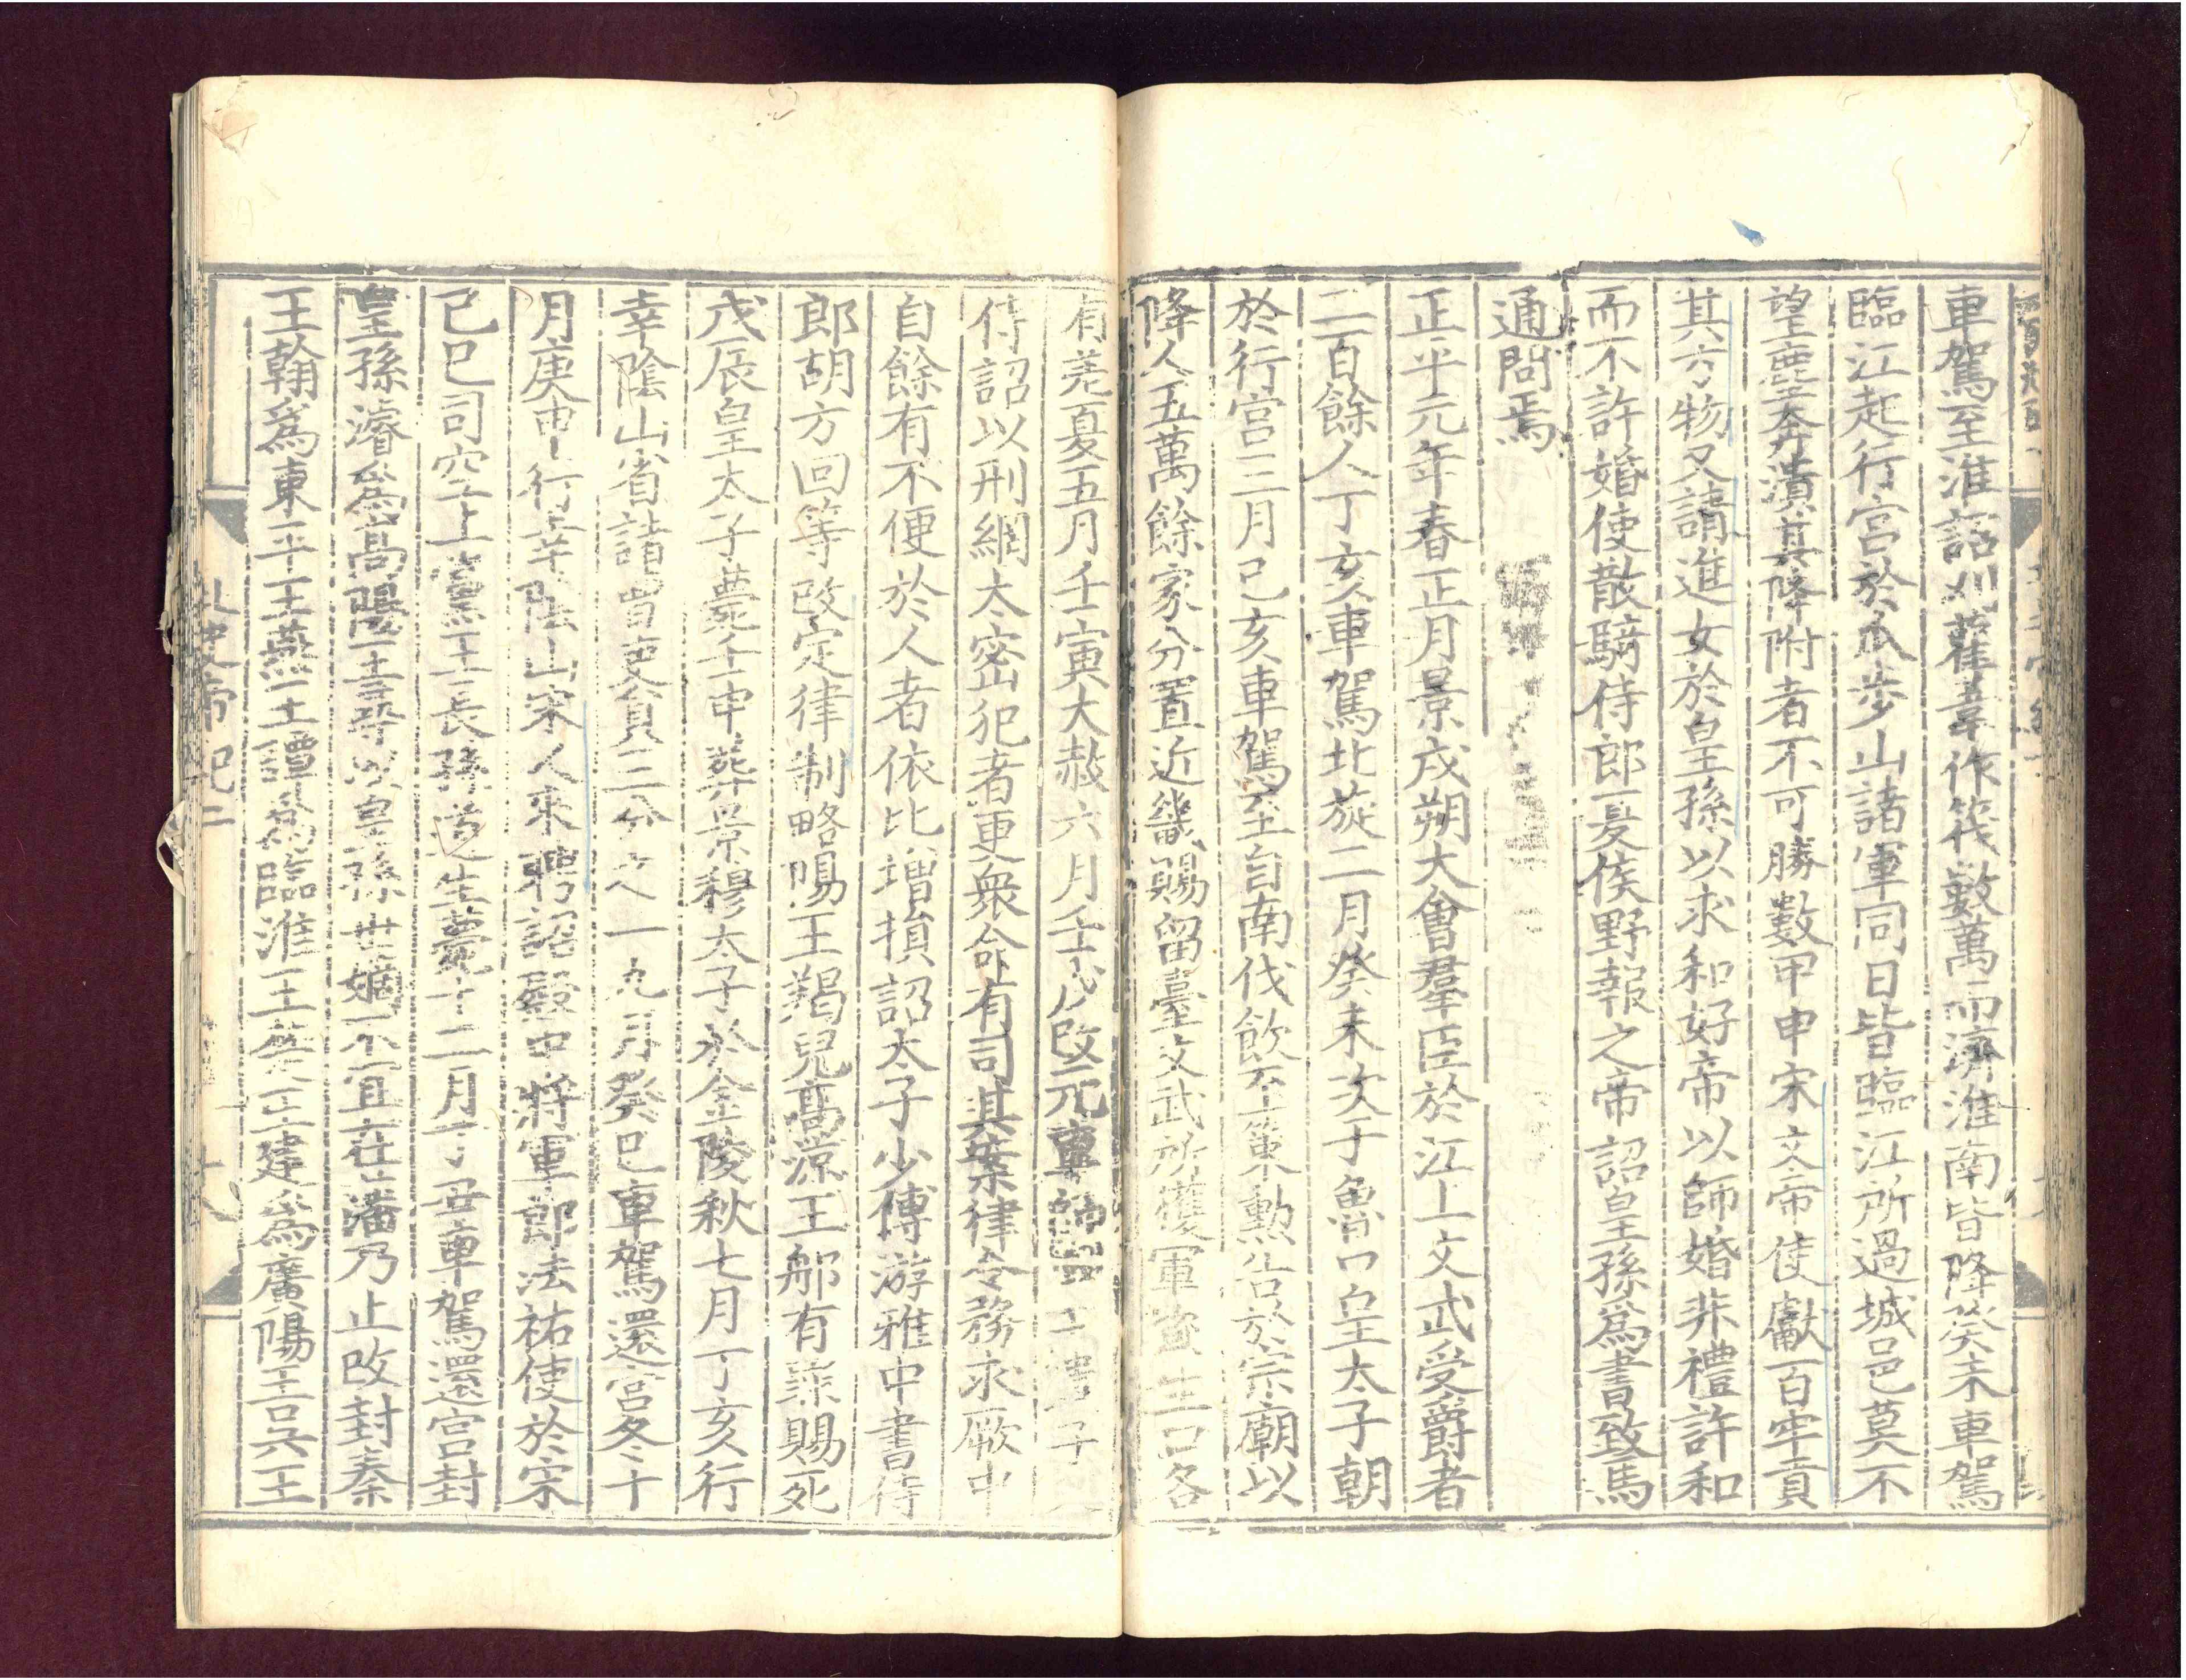 車駕至淮詔刈雚葦作筏數萬而濟淮南皆降癸未車駕
臨江起行宮於瓜步山諸軍同日皆臨江所過城邑莫不
望塵奔潰其降附者不可勝數甲申宋文帝使獻百牢貢
其方物又請進女於皇孫以求和好帝以師婚非禮許和
而不許婚使散騎侍郎夏侯野報之帝詔皇孫爲書致馬
通問焉
正平元年春正月景戌朔大會羣臣於江上文武受爵者
二百餘人丁亥車駕北旋二月癸未次于魯口皇太子朝
於行宮三月己亥車駕至自南伐飲至策勳告於宗廟以
降人五萬餘家分置近畿賜留臺文武所獲軍資生口各
有差夏五月壬寅大赦六月壬戌改元車師
侍詔以刑網太密犯者更衆命有司其案律令務求厥中
自餘有不便於人者依比增損詔太子少傅游雅中書侍
郎胡方回等改定律制略陽王羯兒髙涼王那有罪賜死
戊辰皇太子薨壬申葬景穆太子於金陵秋七月丁亥行
幸陰山省諸曹吏員三分之一九月癸巳車駕還宮冬十
月庚申行幸陰山宋人來聘詔殿中將軍郎法祐使於宋
己巳司空上黨王長孫道生薨十二月丁丑車駕還宮封
皇孫濬爲髙陽王尋以皇孫世嫡不宜在藩乃止改封秦
王翰爲東平王燕王譚爲臨淮王楚王建爲廣陽王吳王
北史帝紀二
十八